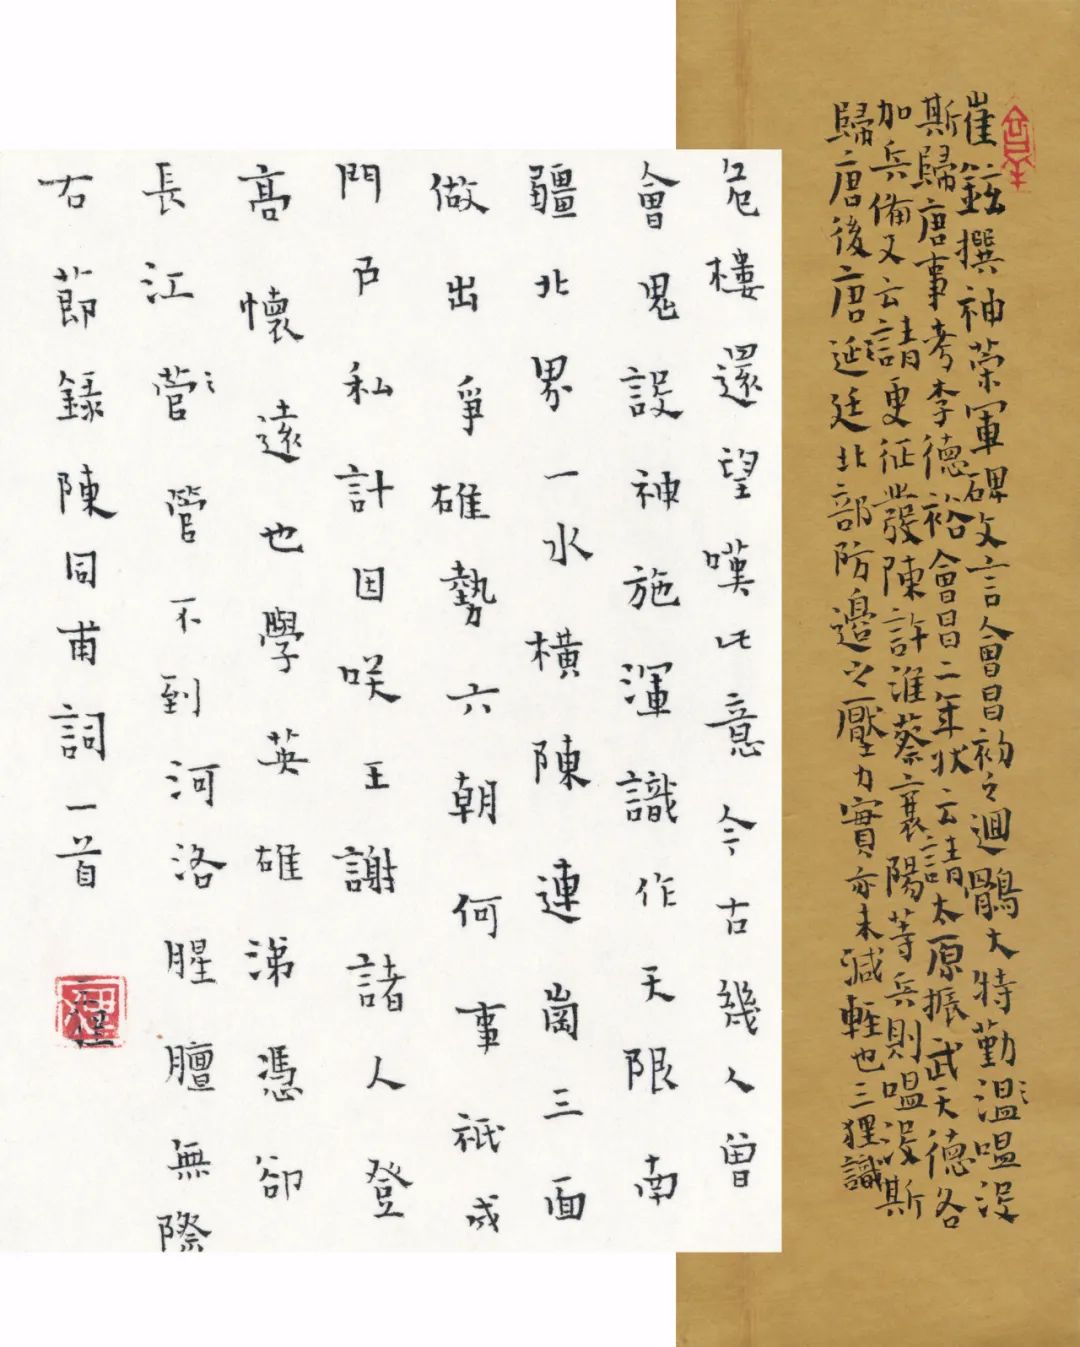 崔鉉撰神荣軍碑文言會昌初之迴鶻大特勤溫嗢沒
斯歸唐事考李德裕會昌二年狀云請太原振武天德各
加兵備又云請更征發陳許淮蔡襄陽等兵則嗢沒斯
歸唐後唐延廷北部防邊之壓力實亦未減輕也三狸識
危樓還望嘆此意今古幾人曾
會鬼設神施渾識作天限南
疆北界一水橫陳連崗三面
做出爭雄勢六朝何事祇成
門戶私計因咲王謝諸人登
高懷遠也學英雄涕憑卻
長江菅管不到河洛腥膻無際
右莭錄陳同甫詞一首